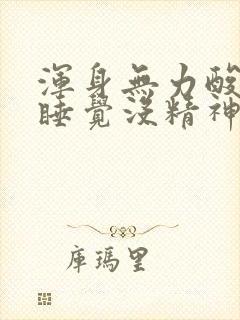 渾身無力酸
睡覺沒精神
庫瑪里